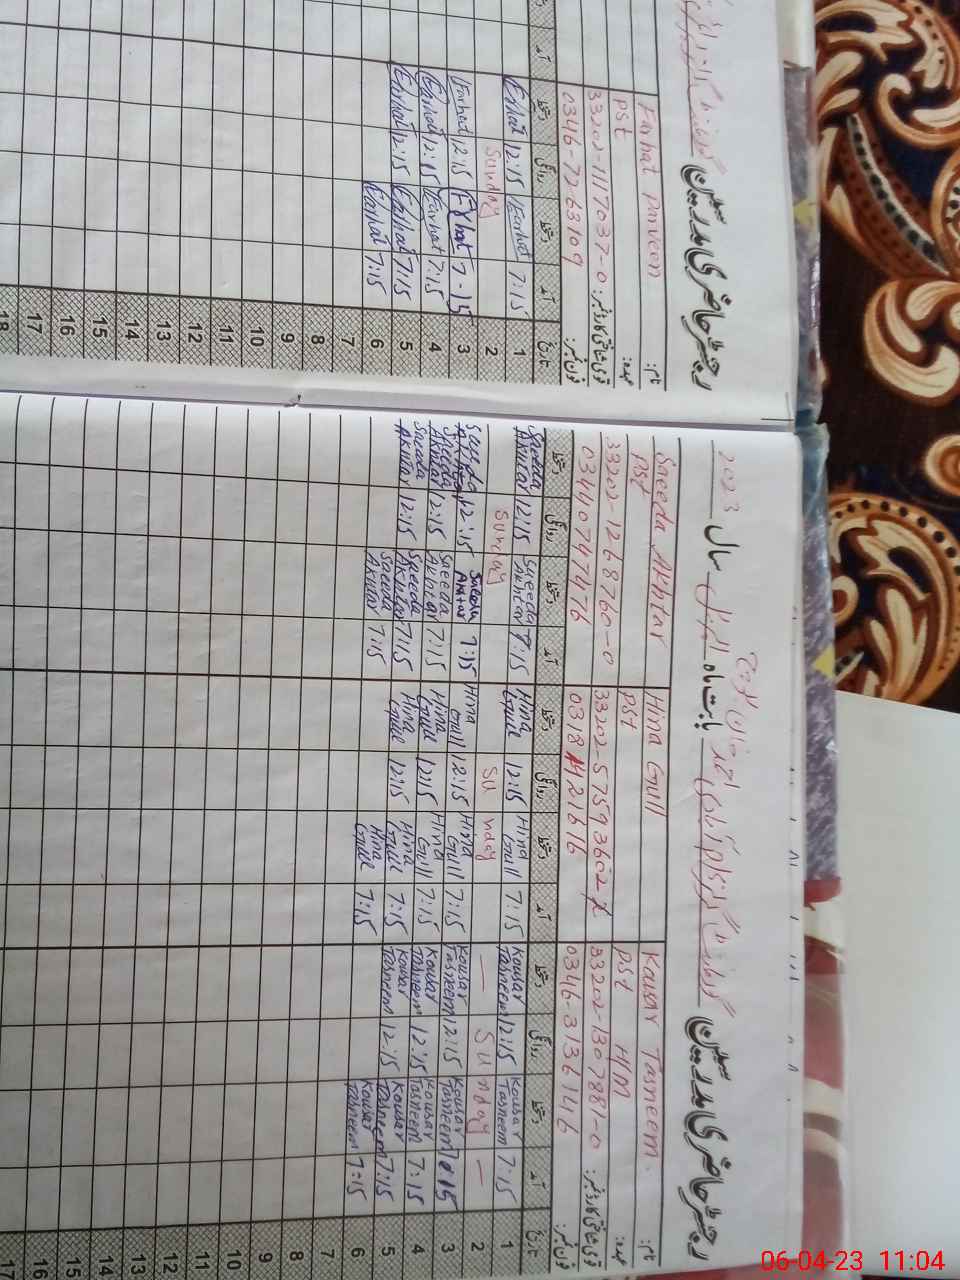 رجسٹر حاضری مدرسین
نام:
Kausar Tasneem.
Hina Gull
Saeeda Akhtar
عہدہ:
PST H/M
PST
PST
قومی شناختی کارڈ نمبر:
33202-1307881-0
33202-5759360-2
33202-1268760-0
فون نمبر:
0346-3136146
03440797476
تاریخ آمد دستخط روانگی دستخط آمد دستخط روانگی دستخط آمد دستخط روانگی دستخط
1 7:15 Kousar Tasneem 12:15 Kousar Tasneem 7:15 Hina Gull 12:15 Hina Gull 7:15 Saeeda Akhtar 12:15 Saeeda Akhtar
2 — Sunday — Sunday Sunday
3 7:15 Kousar Tasneem 12:15 Kousar Tasneem 7:15 Hina Gull 12:15 Hina Gull 7:15 Saeeda Akhtar 12:15 Saeeda
4 7:15 Kousar Tasneem 12:15 Kousar Tasneem 7:15 Hina Gull 12:15 Hina Gull 7:15 Saeeda Akhtar 12:15 Saeeda Akhtar
5 7:15 Kousar Tasneem 12:15 Kousar Tasneem 7:15 Hina Gull 12:15 Hina Gull 7:15 Saeeda Akhtar 12:15 Saeeda Akhtar
6 7:15 Kousar Tasneem 7:15 Hina Gull 7:15 Saeeda Akhtar
7
8
9
10
11
12
13
14
15
16
17
بابت ماہ اپریل سال 2023
رجسٹر حاضری مدرسین
نام:
Farhat Parveen
عہدہ:
PST
قومی شناختی کارڈ نمبر:
33202-1117037-0
فون نمبر:
0346-7263109
تاریخ آمد دستخط روانگی دستخط آمد
1 7:15 Farhat 12:15 Farhat
2 Sunday
3 7-15 Farhat 12:15 Farhat
4 7:15 Farhat 12:15 Farhat
5 7:15 Farhat 12:15 Farhat
6 7:15 Farhat
7
8
9
10
11
12
13
14
15
16
17
18
06-04-23 11:04